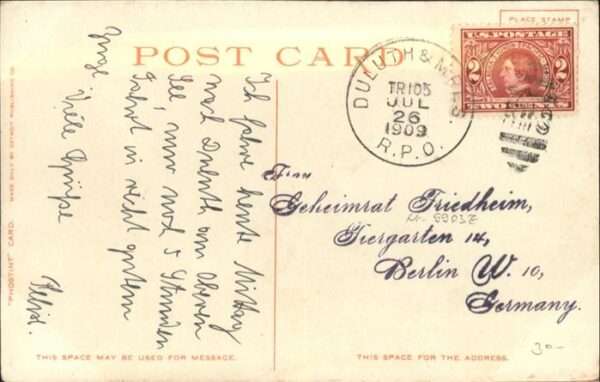 PLACE STAMP
POST CARD
U.S. POSTAGE
2 2
TWO CENTS
DULUTH & MPLS
TR 105
JUL
26
1909
R.P.O.
Ich fahre heute Mittag
nach Duluth am Oberen
See, nur noch 5 Stunden
Fahrt in recht gutem
Zuge. Viele Grüße
Frau
Geheimrat Friedheim,
Tiergarten 14,
Berlin W. 10,
Germany.
Nr. 5903Z
30-
"PHOSTINT" CARD.
MADE ONLY BY DETROIT PUBLISHING CO.
THIS SPACE MAY BE USED FOR MESSAGE.
THIS SPACE FOR THE ADDRESS.